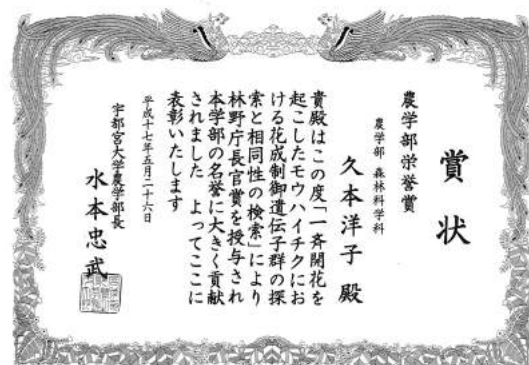 賞状
農学部栄誉賞
農学部 森林科学科
久本洋子殿
貴殿はこの度「一斉開花を
起こしたモウハイチクにお
ける花成制御遺伝子群の探
索と相同性の検索」により
林野庁長官賞を授与され
本学部の名誉に大きく貢献
されました よってここに
表彰いたします
平成十七年五月二十六日
宇都宮大学農学部長
水本忠武